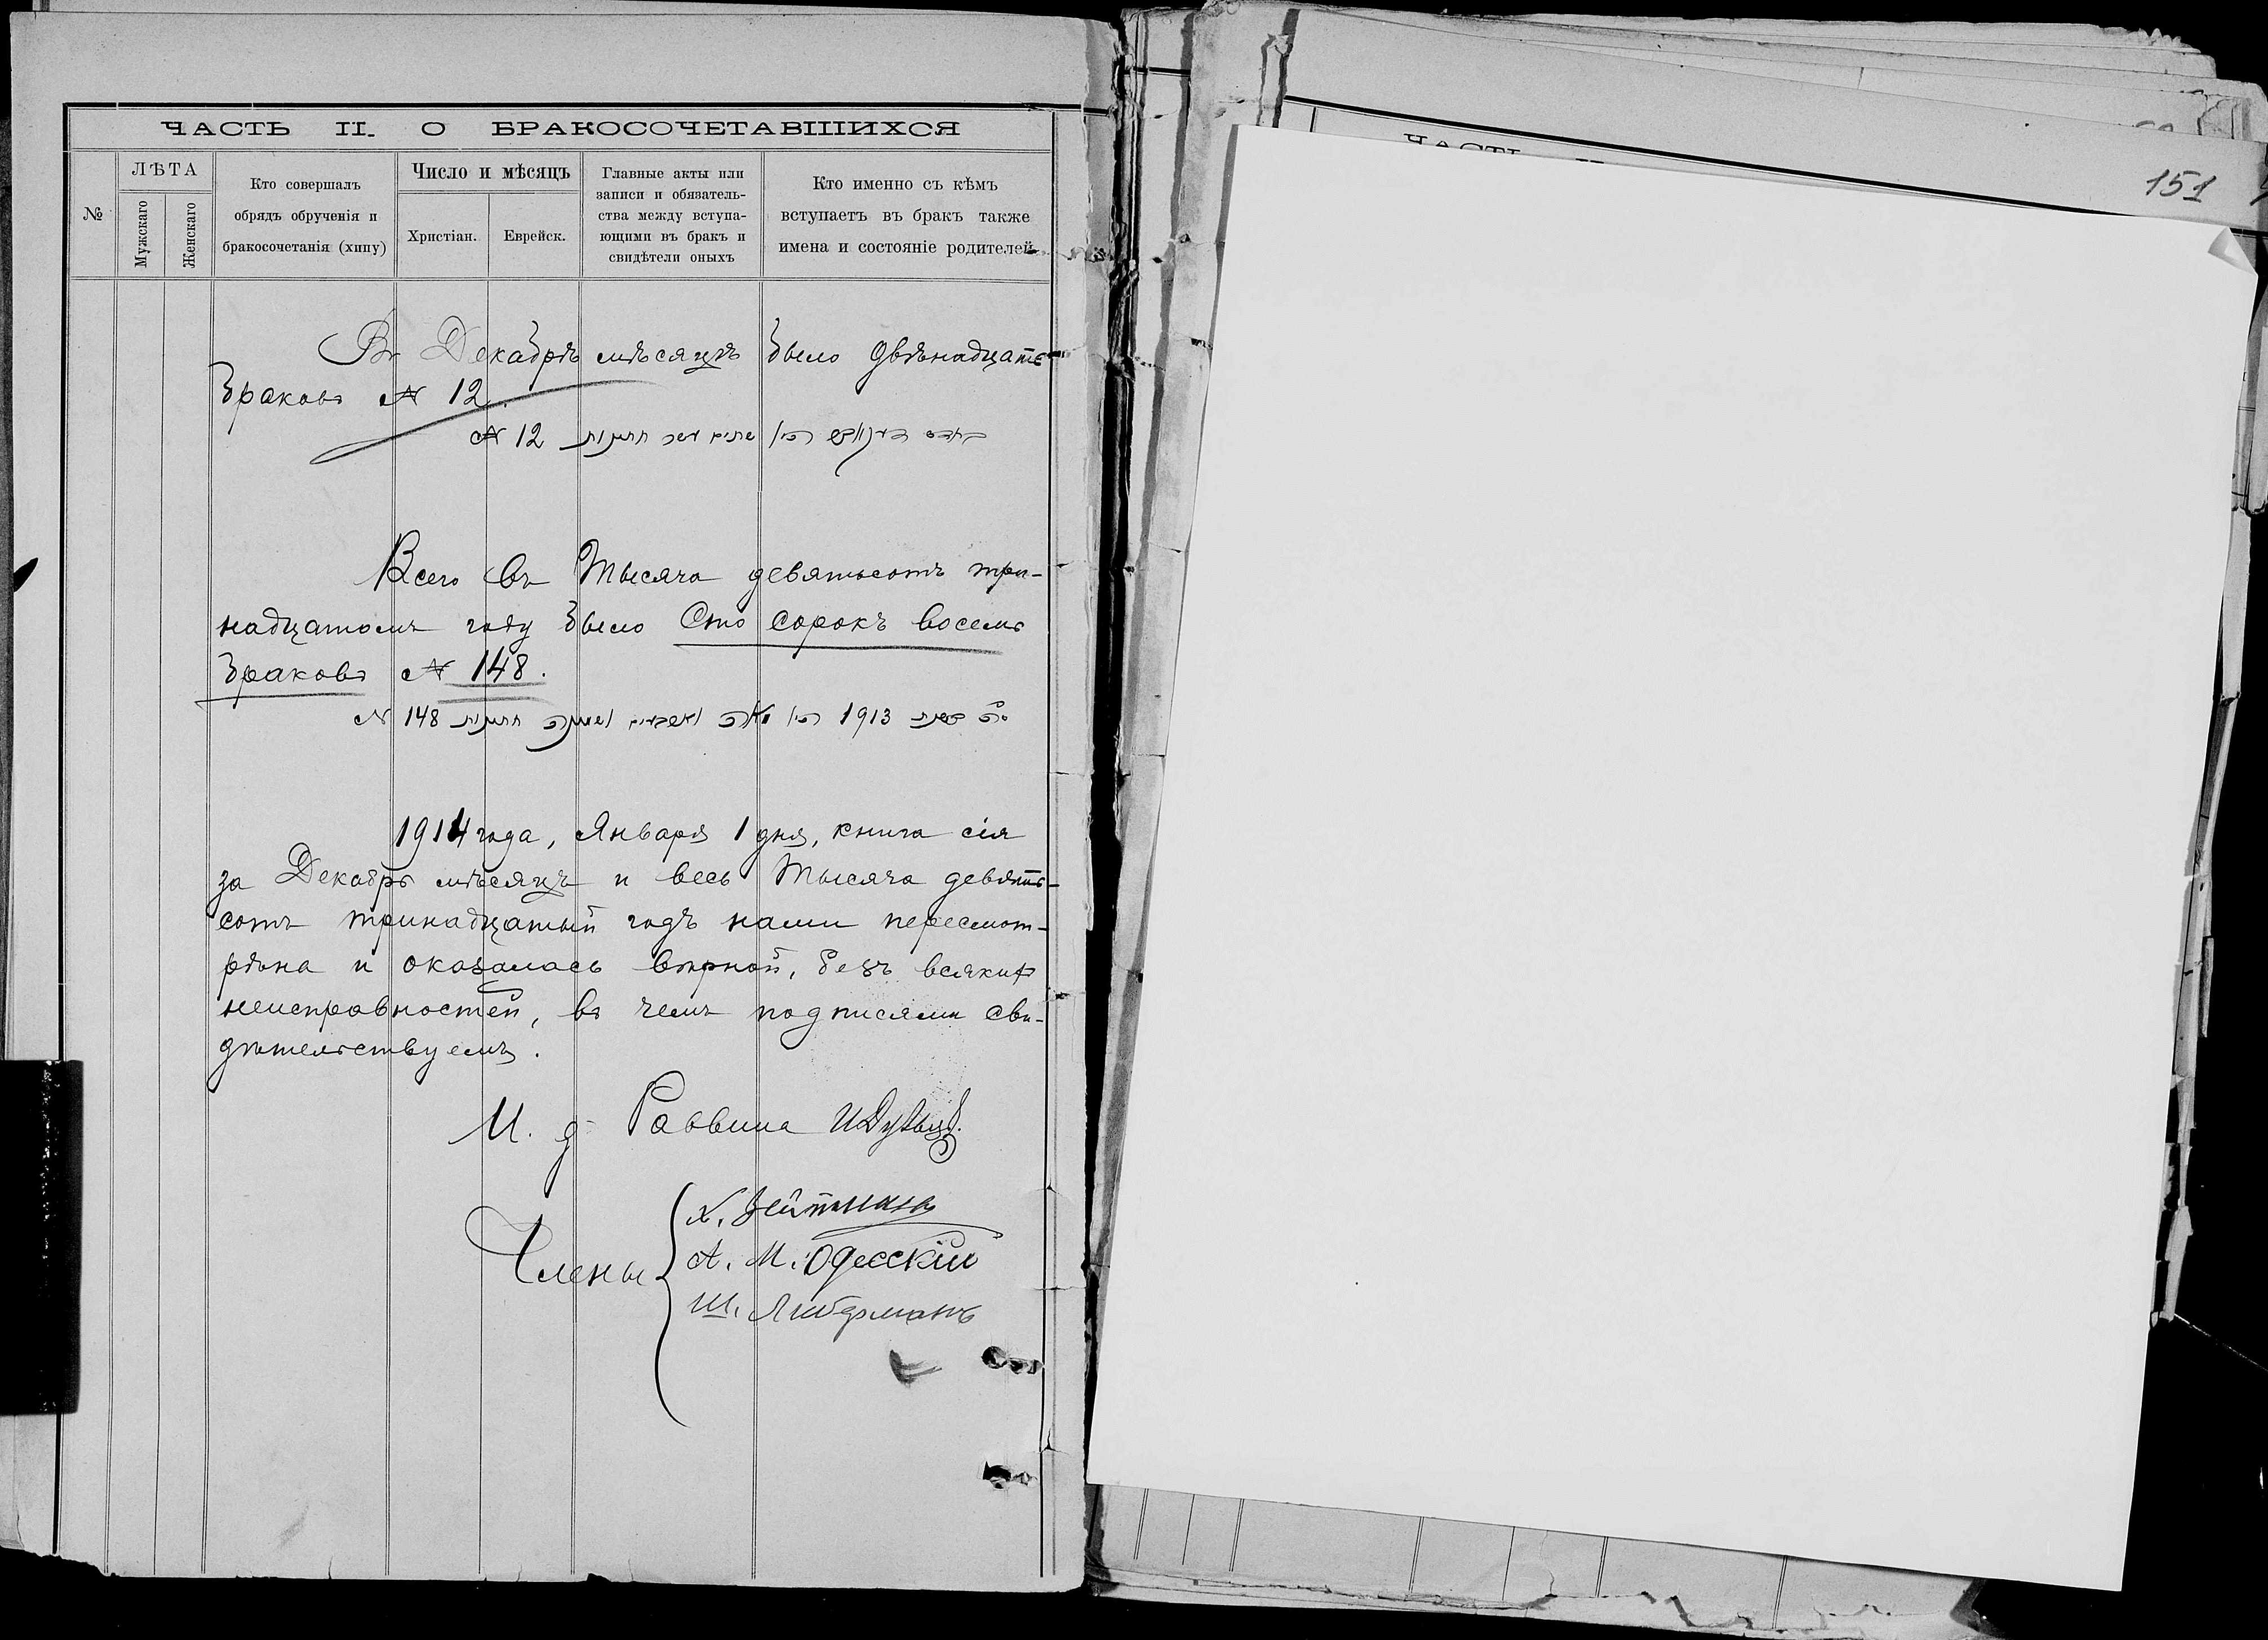 ЧАСТЬ II. О БРАКОСОЧЕТАВШИХСЯ
№
ЛѢТА
Мужскаго
Женскаго
Кто совершалъ
обрядъ обрученія и
бракосочетанія (хипу)
Число и мѣсяцъ
Христіан.
Еврейск.
Главные акты или
записи и обязатель-
ства между вступа-
ющими въ бракъ и
свидѣтели оныхъ
Кто именно съ кѣмъ
вступаетъ въ бракъ также
имена и состояніе родителей
Въ Декабрѣ мѣсяцѣ было двѣнадцать
браковъ № 12.
№ 12 שנים עשר חתונות
Всего въ Тысяча девятьсотъ три-
надцатомъ году было Сто сорокъ восемь
браковъ № 148.
1913 № 148 חתונות
1914 года, Января 1 дня, книга сія
за Декабрь мѣсяцъ и весь Тысяча девять-
сотъ тринадцатый годъ нами пересмот-
рѣна и оказалась вѣрной, безъ всякихъ
неисправностей, въ чемъ подписями сви-
дѣтельствуемъ.
И. д. Раввина
Члены
Х. Вейтманъ
А. М. Одесскій
Ш. Либерманъ
151
ЧАСТЬ